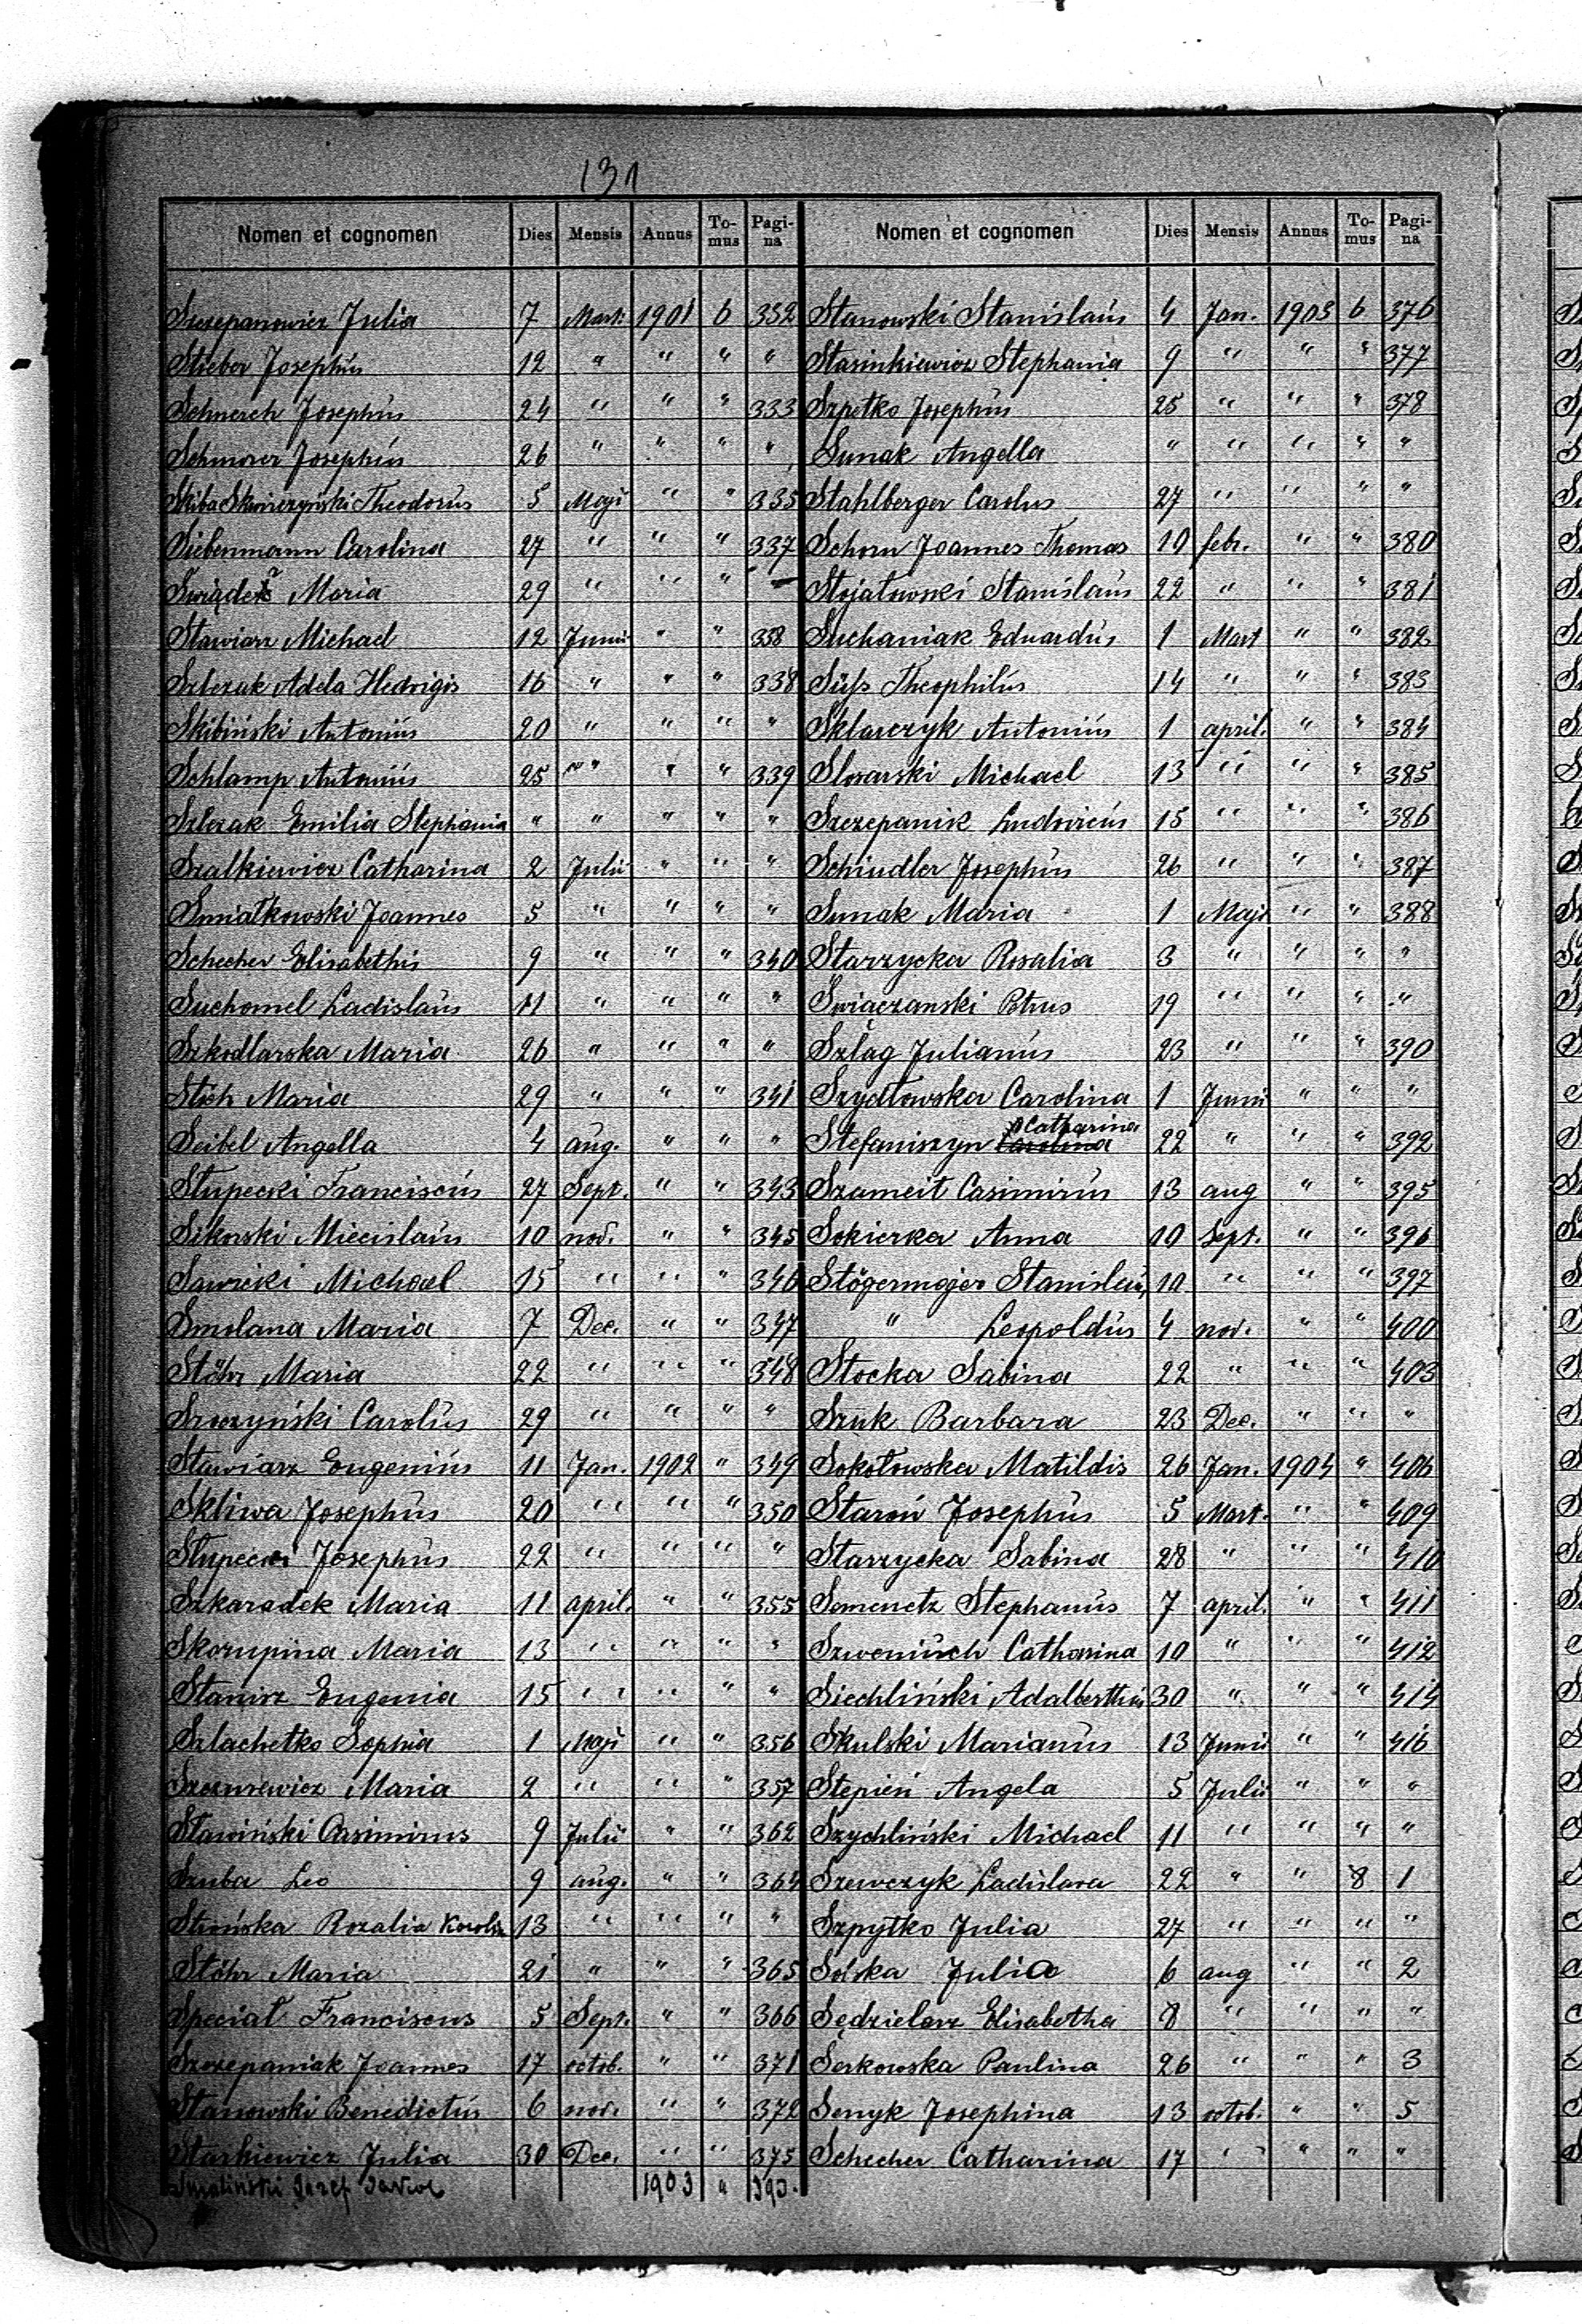 131
Nomen et cognomen Dies Mensis Annus To-mus Pagi-na
Szczepanowicz Julia 7 Mart. 1901 6 332
Stieber Josephus 12 " " " "
Schnerch Josephus 24 " " " 333
Schmorer Josephus 26 " " " "
Skiba Skwirczyński Theodorus 5 Maji " " 335
Siebenmann Carolina 27 " " " 337
Maria 29 " " " –
Stawiarz Michael 12 Junii " " 338
Szlezak Adela Hedvigis 16 " " " 338
Skibiński Antonius 20 " " " "
Schlamp Antonius 25 " " " 339
Szlezak Emilia Stephania " " " " "
Szalkiewicz Catharina 2 Julii " " "
Smiałkowski Joannes 5 " " " "
Schecher Elisabethis 9 " " " 340
Suchomel Ladislaus 11 " " " "
Szkodlarska Maria 26 " " " "
Stich Maria 29 " " " 341
Seibel Angella 4 aug. " " "
Słupecki Franciscus 27 Sept. " " 343
Sikorski Miecislaus 10 nov. " " 345
Sawicki Michael 15 " " " 346
Smolana Maria 7 Dec. " " 347
Stöhr Maria 22 " " " 348
Carolus 29 " " " "
Stawiarz Eugenius 11 Jan. 1902 " 349
Skliwa Josephus 20 " " " 350
Słupecki Josephus 22 " " " "
Szkaradek Maria 11 april. " " 355
Skorupina Maria 13 " " " "
Stanisz Eugenia 15 " " " "
Szlachetko Sophia 1 Maji " " 356
Maria 2 " " " 357
Stawiński Casimirus 9 Julii " " 362
Szuba Leo 9 aug. " " 364
Strońska Rozalia Karolin 13 " " " "
Stöhr Maria 21 " " " 365
Speciał Franciscus 5 Sept. " " 366
Szczepaniak Joannes 17 octob. " " 371
Stanowski Benedictus 6 nov. " " 372
Starkiewicz Julia 30 Dec. " " 375
Smoliński Józef 1903 " 393.
Nomen et cognomen Dies Mensis Annus To-mus Pagi-na
Stanowski Stanislaus 4 Jan. 1903 6 376
Stasinkiewicz Stephania 9 " " " 377
Szpetko Josephus 25 " " " 378
Sunak Angella " " " " "
Stahlberger Carolus 27 " " " "
Schorn Joannes Thomas 10 febr. " " 380
Stojałowski Stanislaus 22 " " " 381
Suchaniak Eduardus 1 Mart " " 382
Süss Theophilus 14 " " " 383
Sklarczyk Antonius 1 april. " " 384
Slosarski Michael 13 " " " 385
Szczepanik Ludovicus 15 " " " 386
Schindler Josephus 26 " " " 387
Sunak Maria 1 Maji " " 388
Starzycka Rosalia 3 " " " "
Swiączanski Petrus 19 " " " "
Szlag Julianus 23 " " " 390
Szydłowska Carolina 1 Junii " " "
Stefaniszyn Carolina Catharina 22 " " " 392
Szameit Casimirus 13 aug " " 395
Sokierka Anna 10 Sept. " " 396
Stögermajer Stanislaus 10 " " " 397
" Leopoldus 4 nov. " " 400
Stocka Sabina 22 " " " 403
Szuk Barbara 23 Dec. " " "
Sokołowska Matildis 26 Jan. 1904 " 406
Staroń Josephus 5 Mart. " " 409
Starzycka Sabina 28 " " " 410
Semenetz Stephanus 7 april. " " 411
Szweniuch Catharina 10 " " " 412
Siechliński Adalberthus 30 " " " 414
Skulski Marianus 13 Junii " " 416
Stepień Angela 5 Julii " " "
Szychliński Michael 11 " " " "
Szewczyk Ladislava 22 " " 8 1
Szpytko Julia 27 " " " "
Solska Julia 6 aug " " 2
Sędzielarz Elisabetha 8 " " " "
Serkowska Paulina 26 " " " 3
Senyk Josephina 13 octob. " " 5
Schecher Catharina 17 " " " "